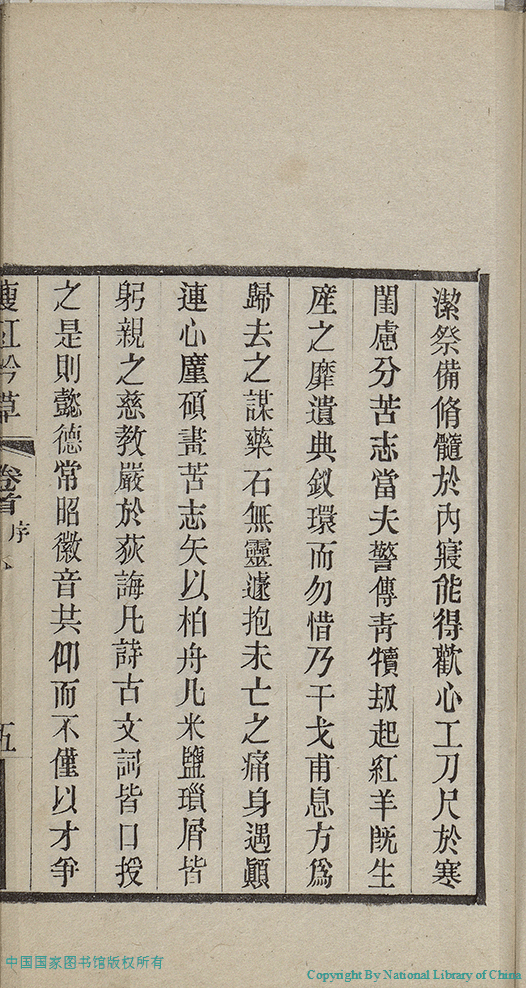 潔祭備脩髓於內寢能得歡心工刀尺於寒
閨慮分苦志當夫警傳靑犢刼起紅羊旣生
產之靡遺典釵環而勿惜乃干戈甫息方爲
歸去之謀藥石無靈遽抱未亡之痛身遇顚
連心廑碩畫苦志矢以柏舟凡米鹽瑣屑皆
躬親之慈敎嚴於荻誨凡詩古文詞皆口授
之是則懿德常昭徽音共仰而不僅以才爭
瘦紅吟草
卷首 序
五
中国国家图书馆版权所有
Copyright By National Library of China